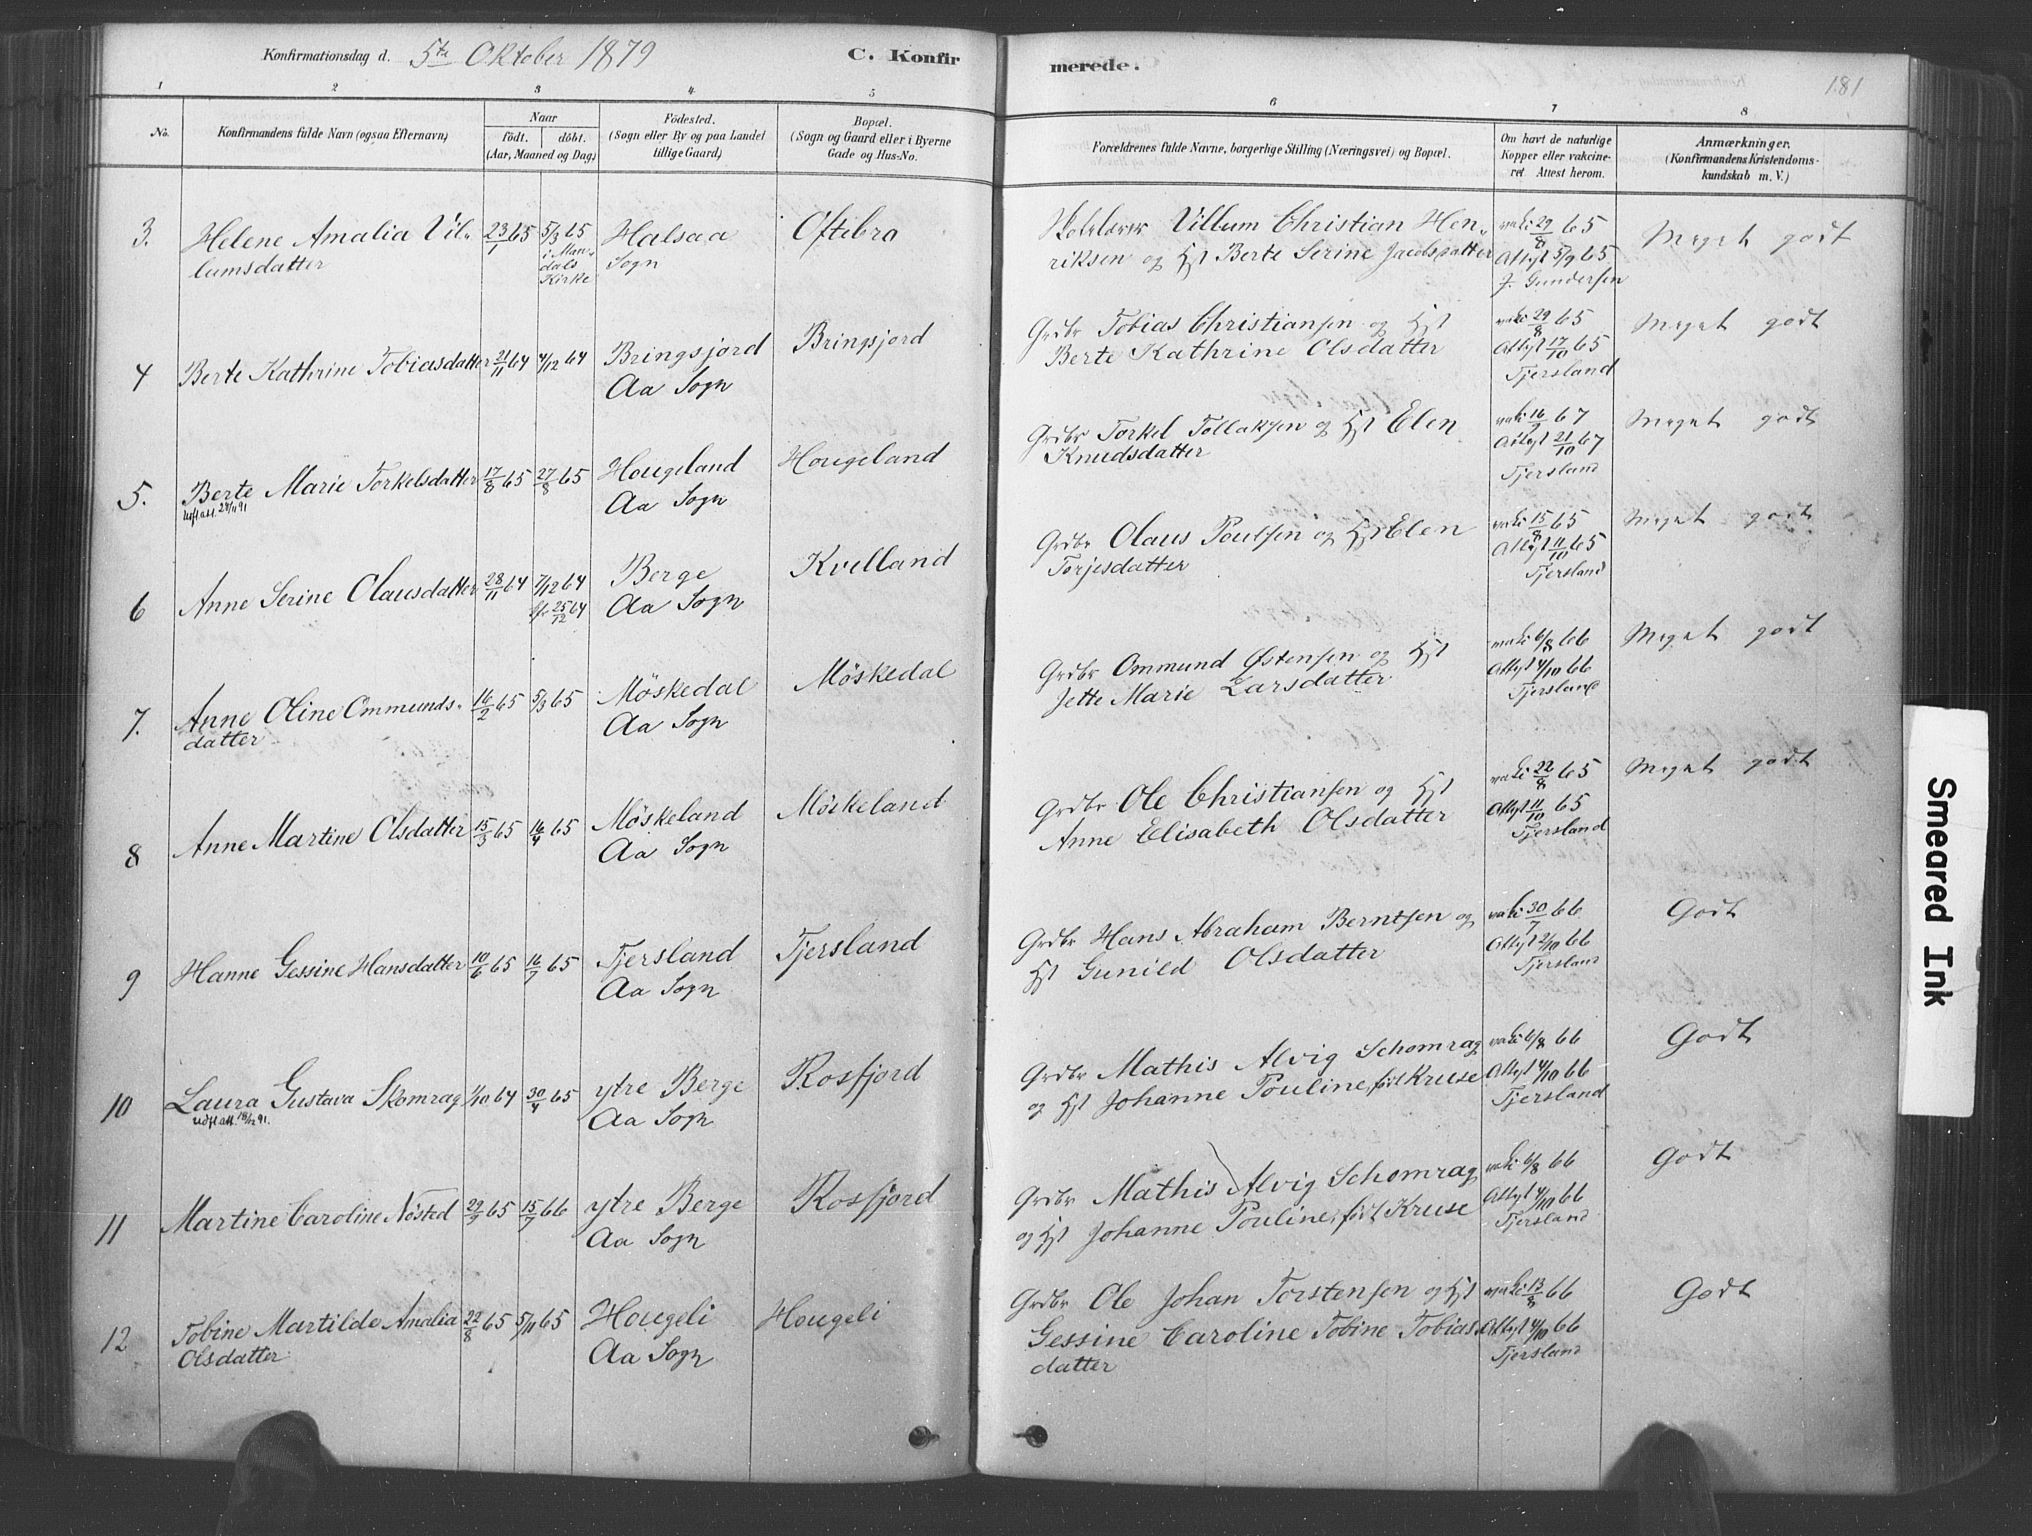 Konfirmationsdag d. 5te Oktober 1879
C. Konfirmerede.
181
1 2 3 4 5 6 7 8
No.
Konfirmandens fulde Navn (ogsaa Efternavn)
Naar
födt. döbt.
(Aar, Maaned og Dag)
Födested.
(Sogn eller By og paa Landet
tillige Gaard)
Bopæl.
(Sogn og Gaard eller i Byerne
Gade og Hus-No.
Forældrenes fulde Navne, borgerlige Stilling (Næringsvei) og Bopæl.
Om havt de naturlige
Kopper eller vakcine-
ret. Attest herom.
Anmærkninger.
(Konfirmandens Kristendoms-
kundskab m. V.)
3. Helene Amalia Vil-
lumsdatter
23/1 65
5/3 65
i Man-
dals
Kirke
Halsaa
Sogn
Oftebro
Villum Christian Hen-
riksen og Hst Berte Serine Jacobsdatter
vaki 29/8 65
Attest 5/9 65
J. Gundersen
Meget godt
4 Berte Kathrine Tobiasdatter 21/11 64 4/12 64
Bringsjord
Aa Sogn
Bringsjord
Grdbr Tobias Christiansen og Hst
Berte Kathrine Olsdatter
vaki 29/8 65
Attest 17/10 65
Tjersland
Meget godt
5. Berte Marie Torkelsdatter 17/8 65 27/8 65
Udfl att. 24/11 91
Hougeland
Aa Sogn
Hougeland
Grdbr Torkel Tollaksen og Hst Elen
Knudsdatter
vaki 16/9 67
Attest 21/10 67
Tjersland
Meget godt
6 Anne Serine Olausdatter 28/11 64 7/12 64
25/12 64
Berge
Aa Sogn
Kvelland
Grdbr Olaus Poulsen og Hst Elen
Torjesdatter
vaki 15/8 65
Attest 11/10 65
Tjersland
Meget godt
7. Anne Oline Ommunds-
datter
16/2 65 5/3 65
Møskedal
Aa Sogn
Møskedal
Grdbr Ommund Østensen og Hst
Jette Marie Larsdatter
vaki 6/8 66
Attest 4/10 66
Tjersland
Meget godt
8 Anne Martine Olsdatter 15/3 65 16/4 65
Møskeland
Aa Sogn
Møskeland
Grdbr Ole Christiansen og Hst
Anne Elisabeth Olsdatter
vaki 22/8 65
Attest 11/10 65
Tjersland
Meget godt
9 Hanne Gessine Hansdatter 10/6 65 16/7 65
Tjersland
Aa Sogn
Tjersland
Grdbr Hans Abraham Berntsen og
Hst Gunild Olsdatter
vaki 30/7 66
Attest 2/10 66
Tjersland
Godt
10 Laura Gustava Skomrag 1/10 64 30/4 65
Udfl att. 18/12 91.
ytre Berge
Aa Sogn
Rosfjord
Grdbr Mathis Alvig Schomrag
og Hst Johanne Pouline, født Kruse
vaki 6/8 66
Attest 4/10 66
Tjersland
Godt
11 Martine Caroline Nøsted 29/9 65 15/7 66
ytre Berge
Aa Sogn
Rosfjord
Grdbr Mathis Alvig Schomrag
og Hst Johanne Pouline, født Kruse
vaki 6/8 66
Attest 4/10 66
Tjersland
Godt
12 Tobine Martilde Amalia
Olsdatter
22/8 65 5/11 65
Hougeli
Aa Sogn
Hougeli
Grdbr Ole Johan Torstensen og Hst
Gessine Caroline Tobine Tobias-
datter
vaki 13/8 66
Attest 4/10 66
Tjersland
Godt
Smeared Ink